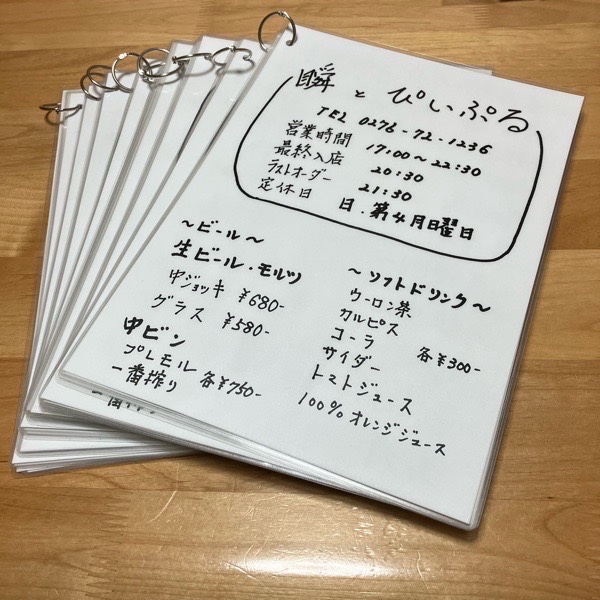 瞬とぴいぷる
TEL 0276-72-1236
営業時間 17:00～22:30
最終入店 20:30
ラストオーダー 21:30
定休日 日・第4月曜日
～ビール～
生ビール・モルツ
中ジョッキ ¥680-
グラス ¥580-
中ビン
プレモル
一番搾り 各¥750-
～ソフトドリンク～
ウーロン茶
カルピス
コーラ 各¥300-
サイダー
トマトジュース
100%オレンジジュース